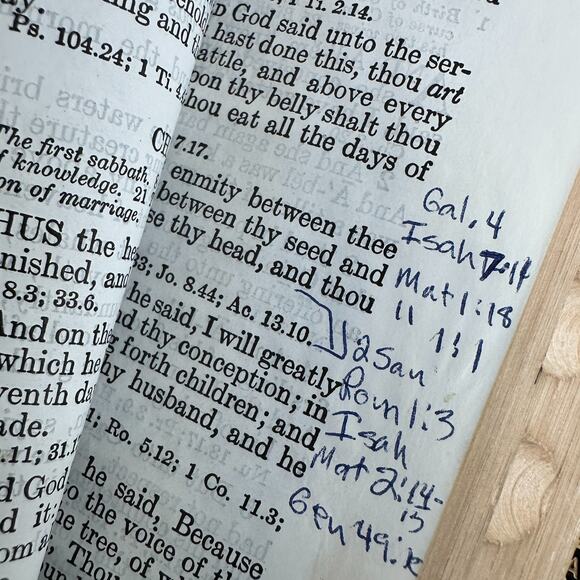 ay.
Ps. 104.24; 1 Ti. 4.
The first sabbath.
f knowledge. 21
on of marriage.
HUS the he
nished, and
8.3; 33.6.
And on the
which he
venth da
ade.
.11; 31.1
d God
d it:
om a
1 Ti. 2.14.
D God said unto the ser-
hast done this, thou art
attle, and above every
pon thy belly shalt thou
hou eat all the days of
7.17.
enmity between thee
between thy seed and
se thy head, and thou
3; Jo. 8.44; Ac. 13.10.
he said, I will greatly
d thy conception; in
g forth children; and
hy husband, and he
; Ro. 5.12; 1 Co. 11.3;
he said, Because
o the voice of th
he tree, of w
; Thou
Gal. 4
Isah 7:14
Mat 1:18
11 1:1
2 Sam
Rom 1:3
Isah
Mat 2:14-
15
Gen 49: